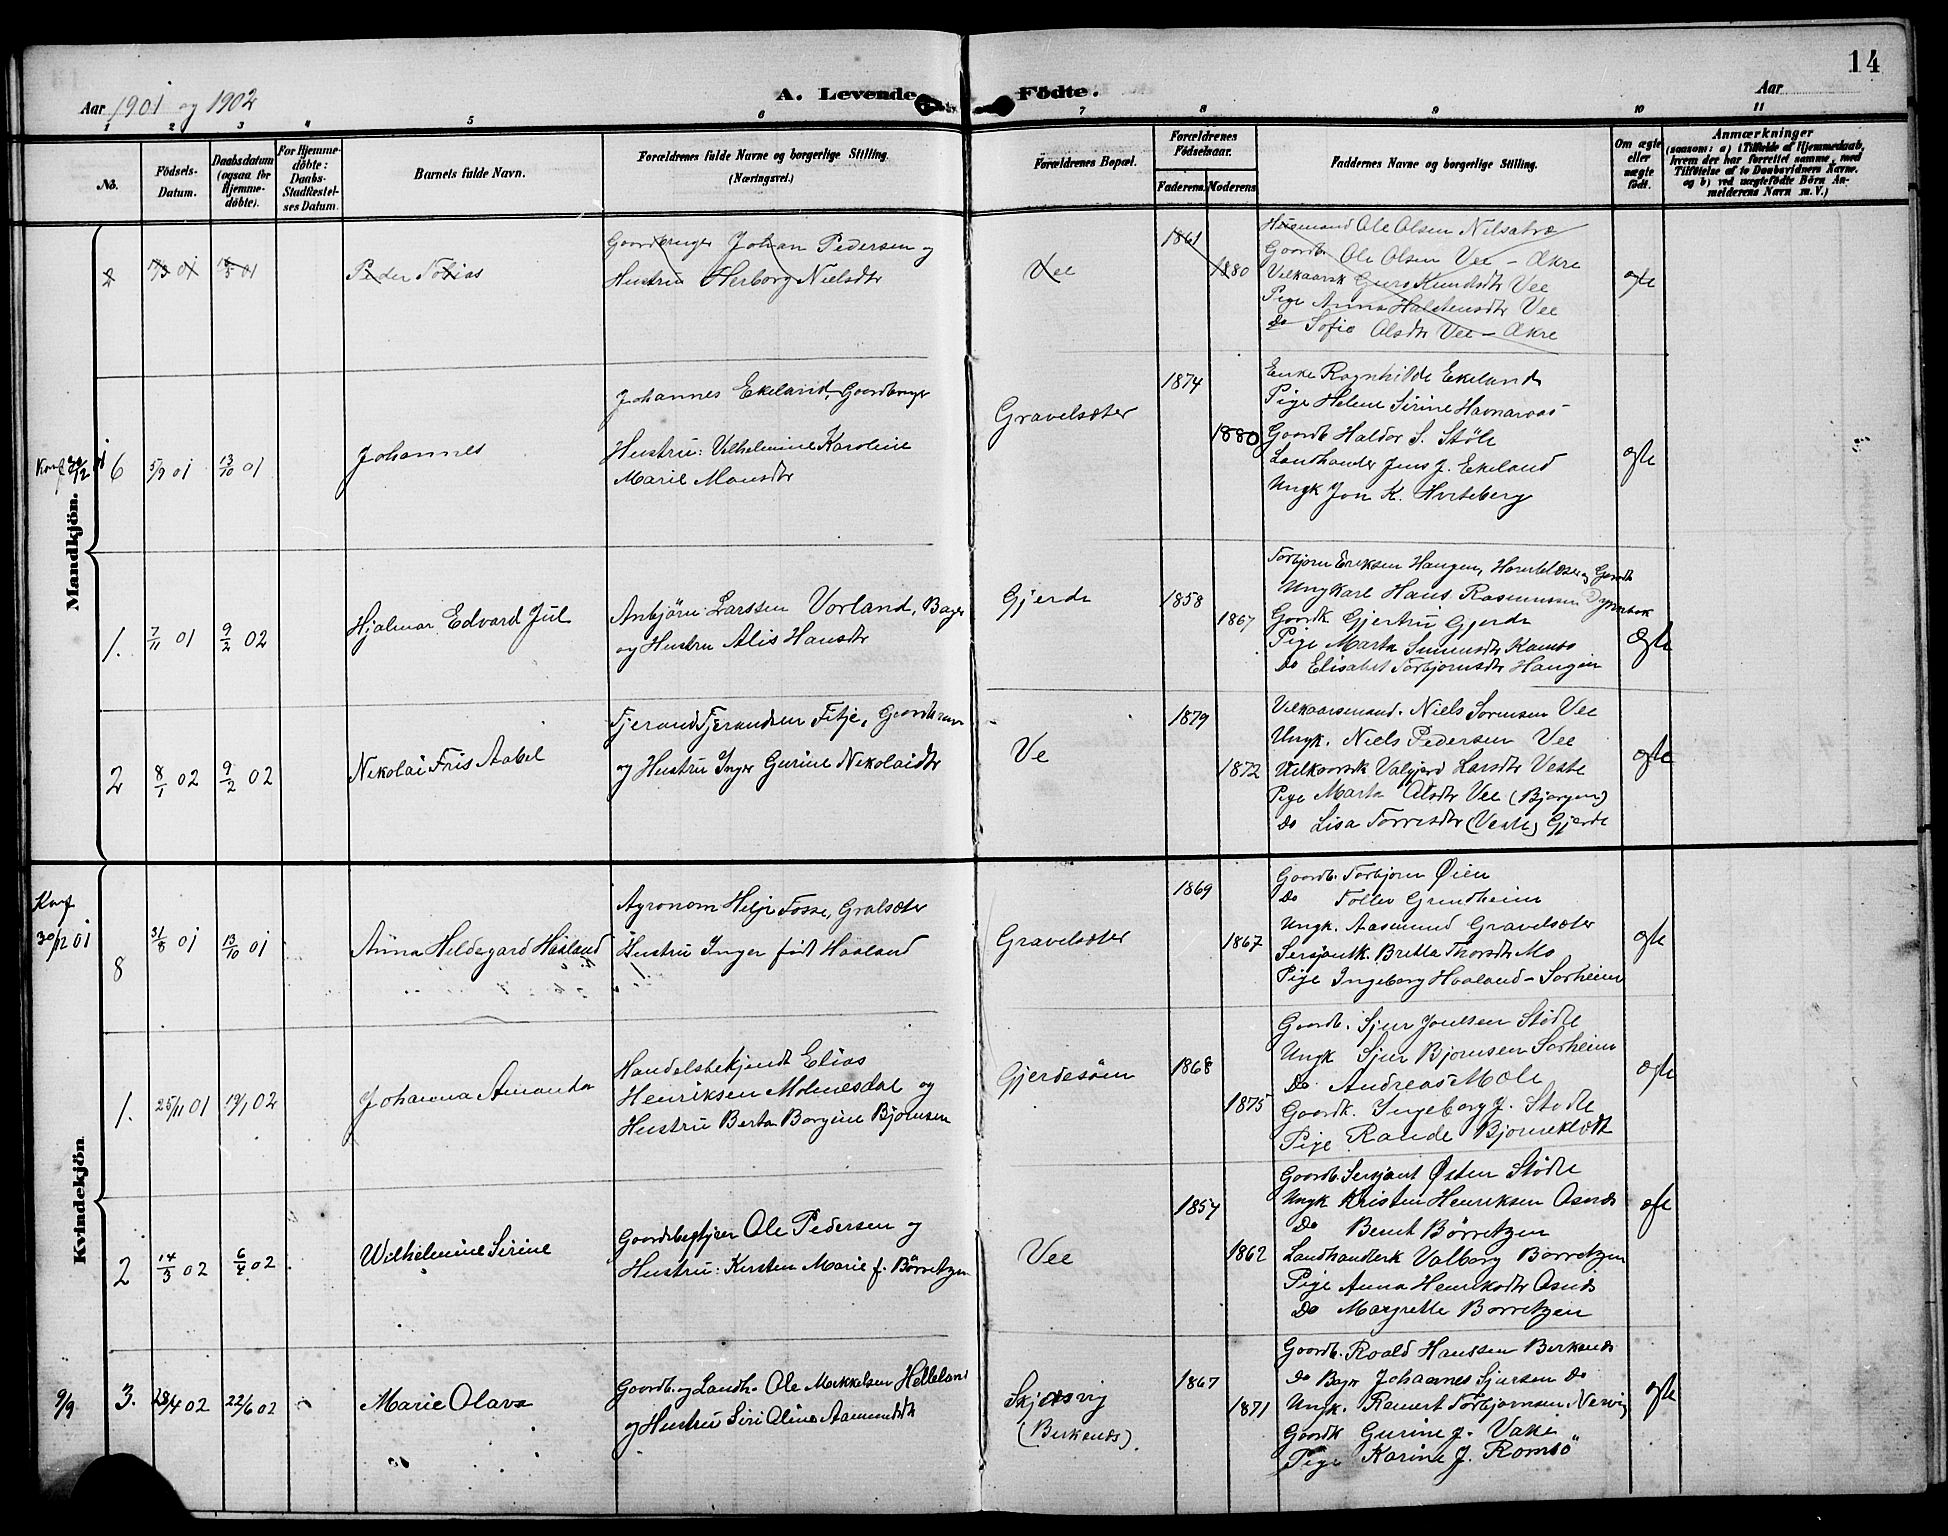 14
Aar 1901 og 1902
A. Levende Födte.
Aar
1 2 3 4 5 6 7 8 9 10 11
No.
Födsels-
Datum.
Daabsdatum
(ogsaa for
Hjemme-
döbte).
For Hjemme-
döbte:
Daabs-
Stadfæstel-
ses Datum.
Barnets fulde Navn.
Forældrenes fulde Navne og borgerlige Stilling.
(Næringsvei.)
Forældrenes Bopæl.
Forældrenes
Födselsaar.
Faderens. Moderens.
Faddernes Navne og borgerlige Stilling.
Om ægte
eller
uægte
födt.
Anmærkninger
(saasom: a) i Tilfælde af Hjemmedaab,
hvem der har forrettet samme, med
Tilföielse af to Daabsvidners Navne.
og b) ved uægtefödte Börn An-
melderens Navn m. V.)
Mandkjön.
2
01
01
Peder Tobias
Gaardbruger Johan Pedersen og
Hustru Herborg Nielsdtr
Vee
1861
1880
Husmand Ole Olsen Nilsabræ
Gaardb. Ole Olsen Vee - Akre
Velkaarsk Guro Knudsdtr Vee
Pige Anna Halstensdtr Vee
Do Sofie Olsdtr Vee - Akre
ægte
Konf 30/12 01
6
5/9 01
13/10 01
Johannes
Johannes Ekeland, Gaardbruger
Hustru: Vilhelmine Karoline
Marie Monsdtr
Gravelsæter
1874
1880
Enke Ragnhilde Ekeland
Pige Helene Sirine Havnaraas
Gaardb. Haldor S. Stöle
Landhandler Jens J. Ekeland
Ungk Jon K. Hviteberg
ægte
1.
7/11 01
9/2 02
Hjalmar Edvard Jul
Anbjörn Larssen Vorland, Bager
og Hustru Alis Hansdtr
Gjerde
1858
1867
Torbjorn Eriksen Haugen, og Gaardb
Ungkarl Hans Rasmussen
Gaardk Gjertrü Gjerde
Pige Marta
Do Elisabet Torbjornsdtr Haugen
Ægte
2
8/1 02
9/2 02
Nikolai Fris Aabel
Tjerand Tjerandsen Fitje,
og Hustru Inger Gurine Nikolaidtr
Ve
1879
1872
Velkaarsmand. Niels Sorensen Vee
Ungk. Niels Pedersen Vee
Velkaarsk Valgjerd Larsdtr Veste
Pige Marta Olsdtr Vee (Bjorgum)
Do Lisa Torresdtr (Veste) Gjerde
ægte
Kvindekjön
Konf
30/12 01
8
31/8 01
13/10 01
Anna Hildegard Haaland
Agronom Helje Fosse, Gralsæter
Hustru Inger född Haaland
Gravelsæter
1869
1867
Gaardb. Torbjorn Øien
Do Tollev Grindheim
Ungk. Aasmund Gravelsæter
Sersjantk. Britta Thorsdtr Mo
Pige Ingeborg Haaland - Sorheim
ægte
1.
25/11 01
19/1 02
Johanna Amanda
Handelsbetjendt Elias
Henriksen Molnesdal og
Hustru Berta Borgine Bjornsen
Gjerdesöen
1868
1875
Gaardb. Sjur Joulsen Stödle
Ungk Sjur Bjornsen Sorheim
Do Andreas Mæle
Gaardk. Ingeborg J. Stödle
Pige Rande
ægte
2
14/3 02
6/4 02
Wilhelmine Sirine
Gaardsbestyrer Ole Pedersen og
Hustru: Kirsten Marie f. Börretzen
Vee
1857
1862
Gaardb. Sersjant Østen Stödle
Ungk Kristen Henriksen Osnes
Do Bernt Börretzen
Landhandlerk Valborg Borretzen
Pige Anna Henriksdtr Osnes
Do Margrethe Borretzen
ægte
9/9
3.
28/4 02
22/6 02
Marie Olava
Gaardb. og Landh. Ole Mikkelsen Helleland
og Hustru Siri Oline Aamundsdtr
Skjersvig
(Birkenes).
1867
1871
Gaardb. Roald Hanssen Birkenes
Do Johannes Sjursen Do
Ungk. Reinert Torbjornsen, Nervig
Gaardk Gurine J. Vake
Pige Karine J. Romsö
ægte